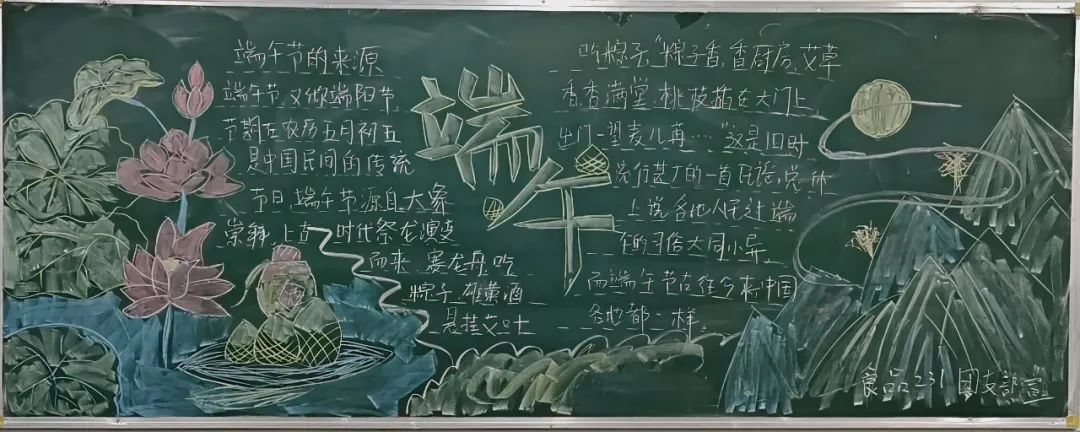 端午节的来源
端午节,又似端阳节,
节期在农历五月初五
是中国民间的传统
节日,端午节源自天象
崇拜,上古时代祭龙演变
而来,赛龙舟,吃
粽子,雄黄酒
悬挂艾叶
端午
吃粽子,"粽子香,香厨房,艾草
香,香满堂,桃枝插在大门上,
出门一望麦儿再…"这是旧时
流行甚广的一首民谣,总体
上说各地人民过端
午的习俗大同小异,
而端午节古往今来,中国
各地都一样。
食品231团支部宣